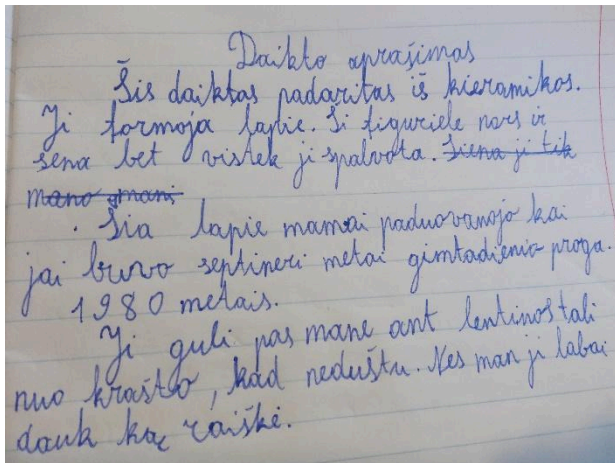 Daikto aprašimas
Šis daiktas padaritas iš kieramikos.
Ji formoja lapie. Ši figuriele nors ir
sena bet vistek ji spalvota. Siena ji tik
mano mani
. Šia lapie mamai paduovanojo kai
jai buvo septineri metai gimtadienio proga.
1980 metais.
Ji guli pas mane ant lentinos tali
nuo krašto, kad neduštu. Nes man ji labai
dauk ką raiškė.